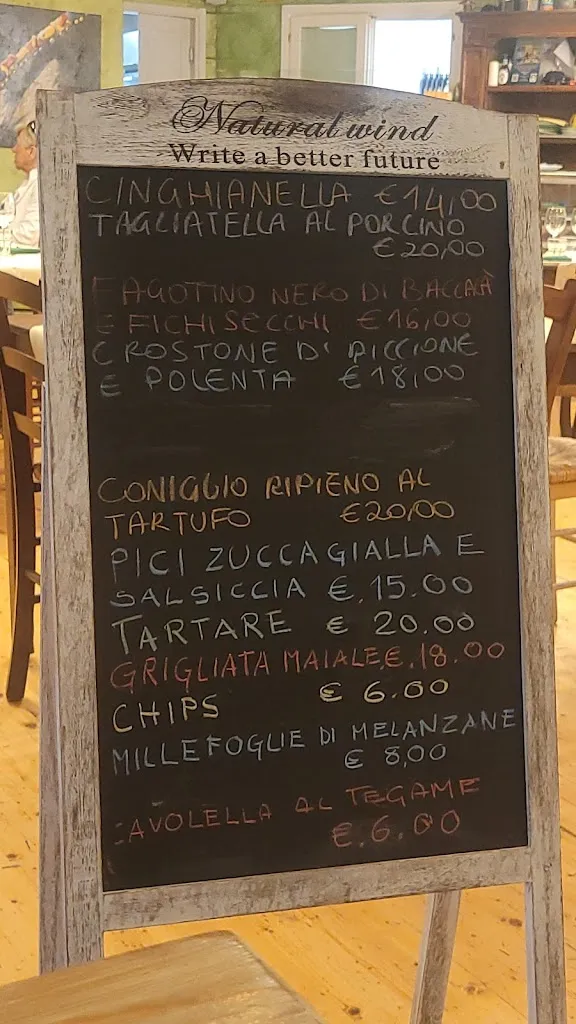 Natural wind
Write a better future
CINGHIANELLA €14,00
TAGLIATELLA AL PORCINO
€20,00
FAGOTINO NERO DI BACCALÀ
E FICHI SECCHI €16,00
CROSTONE DI PICCIONE
E POLENTA €18,00
CONIGLIO RIPIENO AL
TARTUFO €20,00
PICI ZUCCA GIALLA E
SALSICCIA €.15.00
TARTARE € 20.00
GRIGLIATA MAIALE €.18.00
CHIPS € 6.00
MILLEFOGLIE DI MELANZANE
€ 8,00
CAVOLELLA AL TEGAME
€.6.00